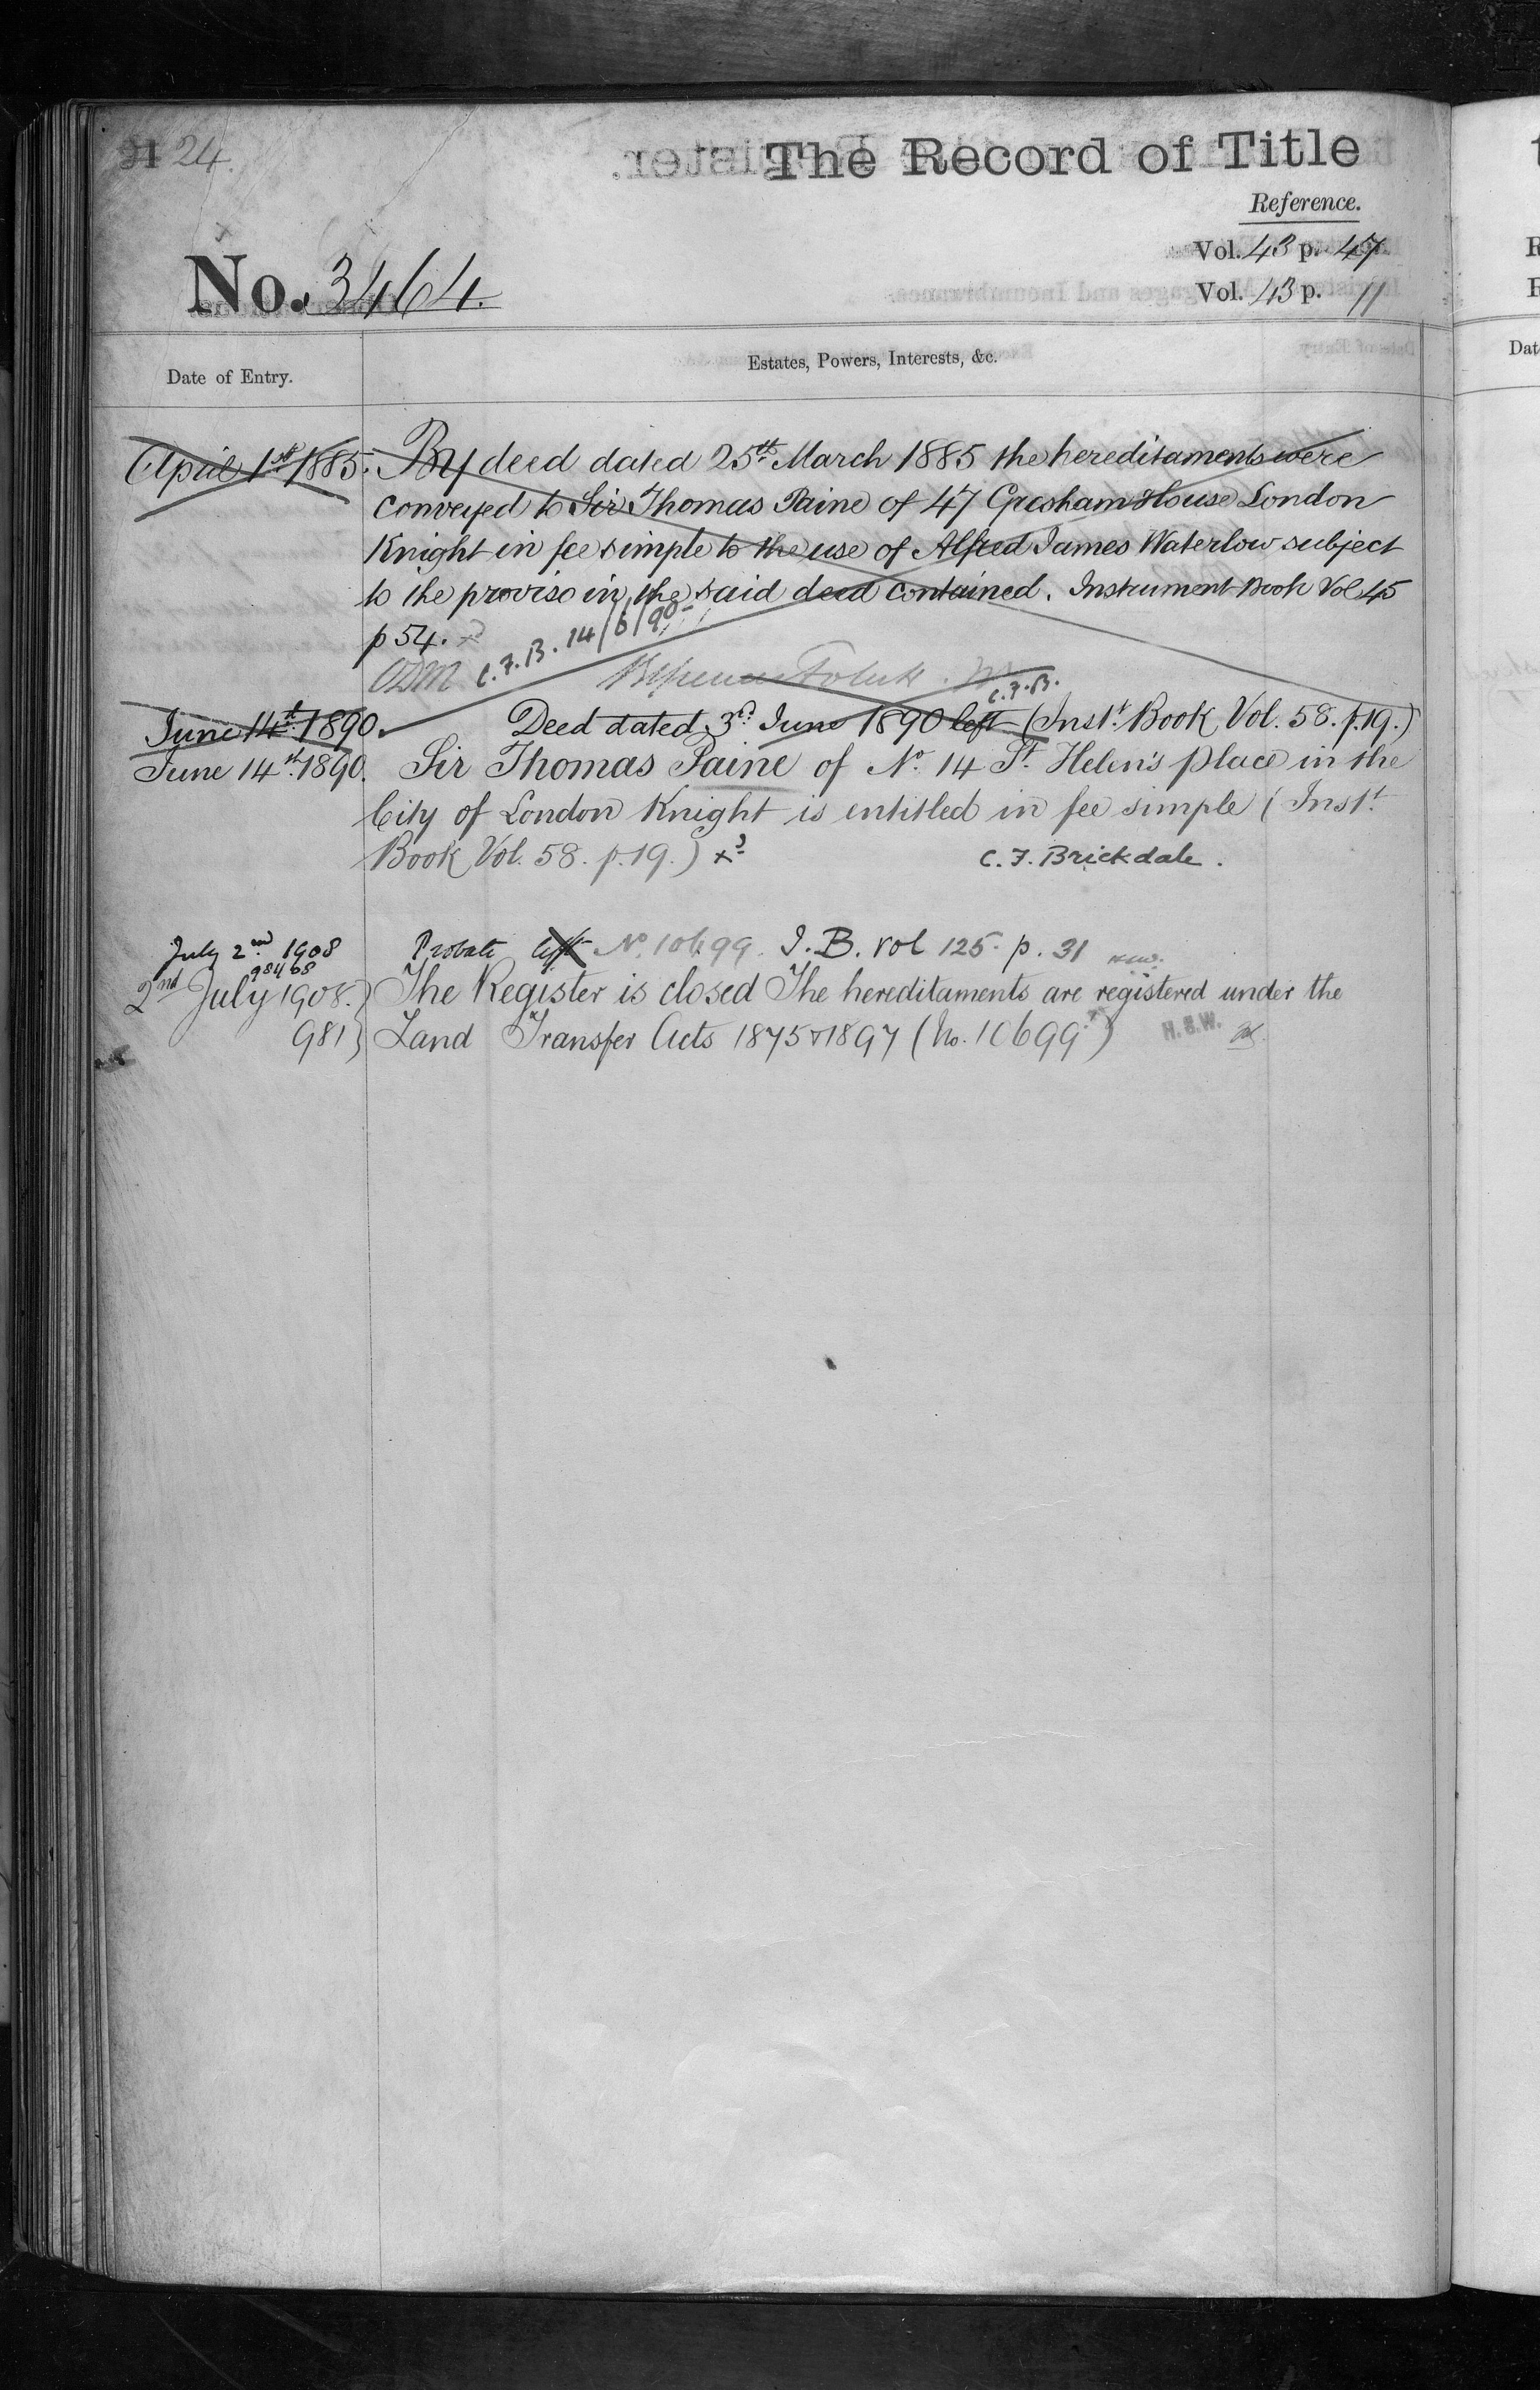 24.
The Record of Title
Reference.
Vol. 43 p. 47
Vol. 43 p. 11
No. 3464.
Date of Entry.
Estates, Powers, Interests, &c.
April 1st 1885. By deed dated 25th March 1885 the hereditaments were
conveyed to Sir Thomas Paine of 47 Gresham House London
Knight in fee simple to the use of Alfred James Waterlow subject
to the proviso in the said deed contained. Instrument Book Vol 45
p 54.
C.F.B. 14/6/90
C.F.B.
June 14th 1890. Deed dated 3rd June 1890 left (Inst. Book Vol. 58. p.19.)
June 14th 1890. Sir Thomas Paine of No. 14 St. Helen's place in the
City of London Knight is entitled in fee simple (Inst.
Book Vol. 58. p.19.)
C.F. Brickdale.
July 2nd 1908 Probate left No. 10699. I.B. vol 125. p. 31
98468
2nd July 1908. The Register is closed The hereditaments are registered under the
981 Land Transfer Acts 1875 & 1897 (No. 10699) H.S.W.
Dat